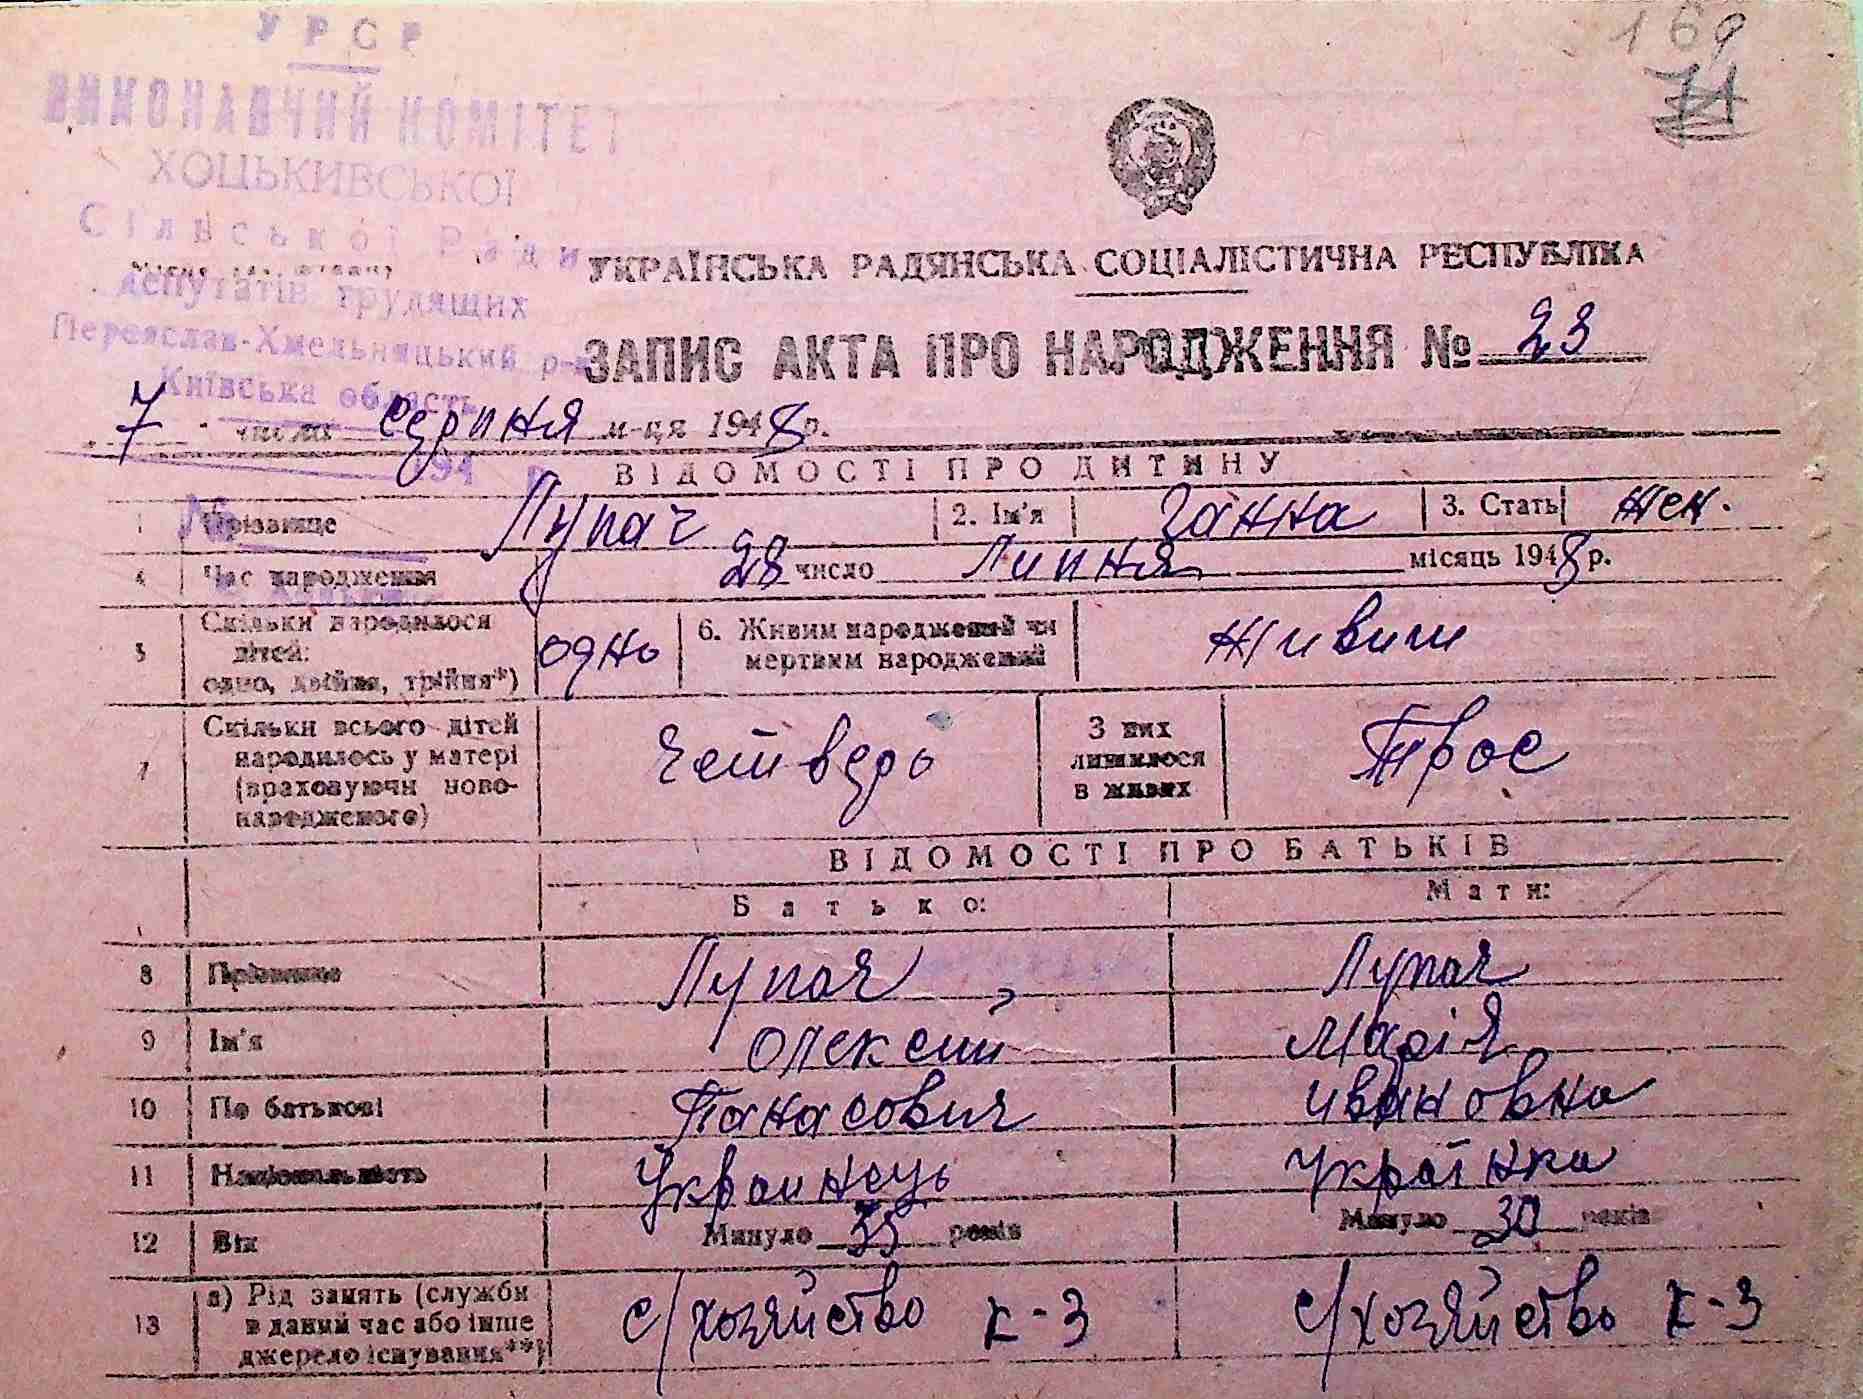 169
71
УРСР
ВИКОНАВЧИЙ КОМІТЕТ
ХОЦЬКИВСЬКОЇ
Сільської Ради
депутатів трудящих
Переяслав-Хмельницький р-н
Київська область
194 р
№
УКРАЇНСЬКА РАДЯНСЬКА СОЦІАЛІСТИЧНА РЕСПУБЛІКА
ЗАПИС АКТА ПРО НАРОДЖЕННЯ № 23
7 числа серпня м-ця 1948 р.
ВІДОМОСТІ ПРО ДИТИНУ
1 Прізвище Лупач 2. Ім'я Ганна 3. Стать жен.
4 Час народження 28 число Липня місяць 1948 р.
5 Скільки народилося дітей: одно, двійня, трійня*) одно 6. Живим народжений чи мертвим народжений живим
7 Скільки всього дітей народилось у матері (враховуючи новонародженого) Четверо З них лишилося в живих Трое
ВІДОМОСТІ ПРО БАТЬКІВ
Батько: Мати:
8 Прізвище Лупач Лупач
9 Ім'я Олексий Марія
10 По батькові Панасович Ивановна
11 Національність Украинець Українка
12 Вік Минуло 35 років Минуло 30 років
13 а) Рід занять (служби в даний час або інше джерело існування**) с/хозяйство к-з с/хозяйство к-з